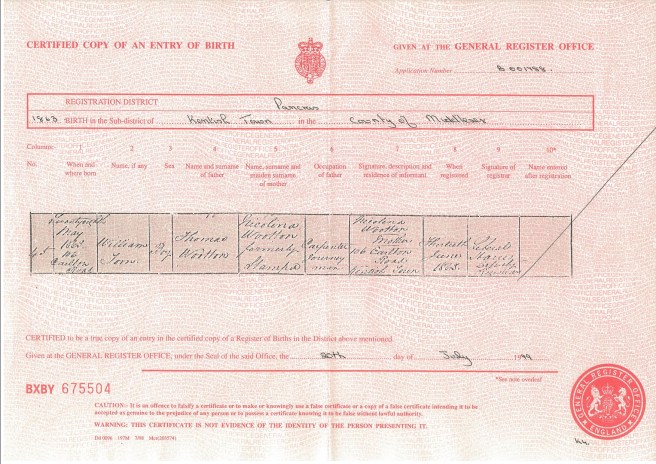 CERTIFIED COPY OF AN ENTRY OF BIRTH
GIVEN AT THE GENERAL REGISTER OFFICE
Application Number
REGISTRATION DISTRICT Pancras
1863 BIRTH in the Sub-district of Kentish Town in the County of Middlesex
Columns: 1 2 3 4 5 6 7 8 9 10*
No. When and where born Name, if any Sex Name and surname of father Name, surname and maiden surname of mother Occupation of father Signature, description and residence of informant When registered Signature of registrar Name entered after registration
May 1863 116 Carlton Road
William Tom
Boy
Thomas Wootton
Nicolena Wootton formerly Stamp
Carpenter Journeyman
Nicolena Wootton Mother 116 Carlton Road Kentish Town
June 1863
CERTIFIED to be a true copy of an entry in the certified copy of a Register of Births in the District above mentioned.
Given at the GENERAL REGISTER OFFICE, under the Seal of the said Office, the 20th day of July 1999
*See note overleaf
BXBY 675504
CAUTION:- It is an offence to falsify a certificate or to make or knowingly use a false certificate or a copy of a false certificate intending it to be
accepted as genuine to the prejudice of any person or to possess a certificate knowing it to be false without lawful authority.
WARNING: THIS CERTIFICATE IS NOT EVIDENCE OF THE IDENTITY OF THE PERSON PRESENTING IT.
GENERAL REGISTER OFFICE
ENGLAND